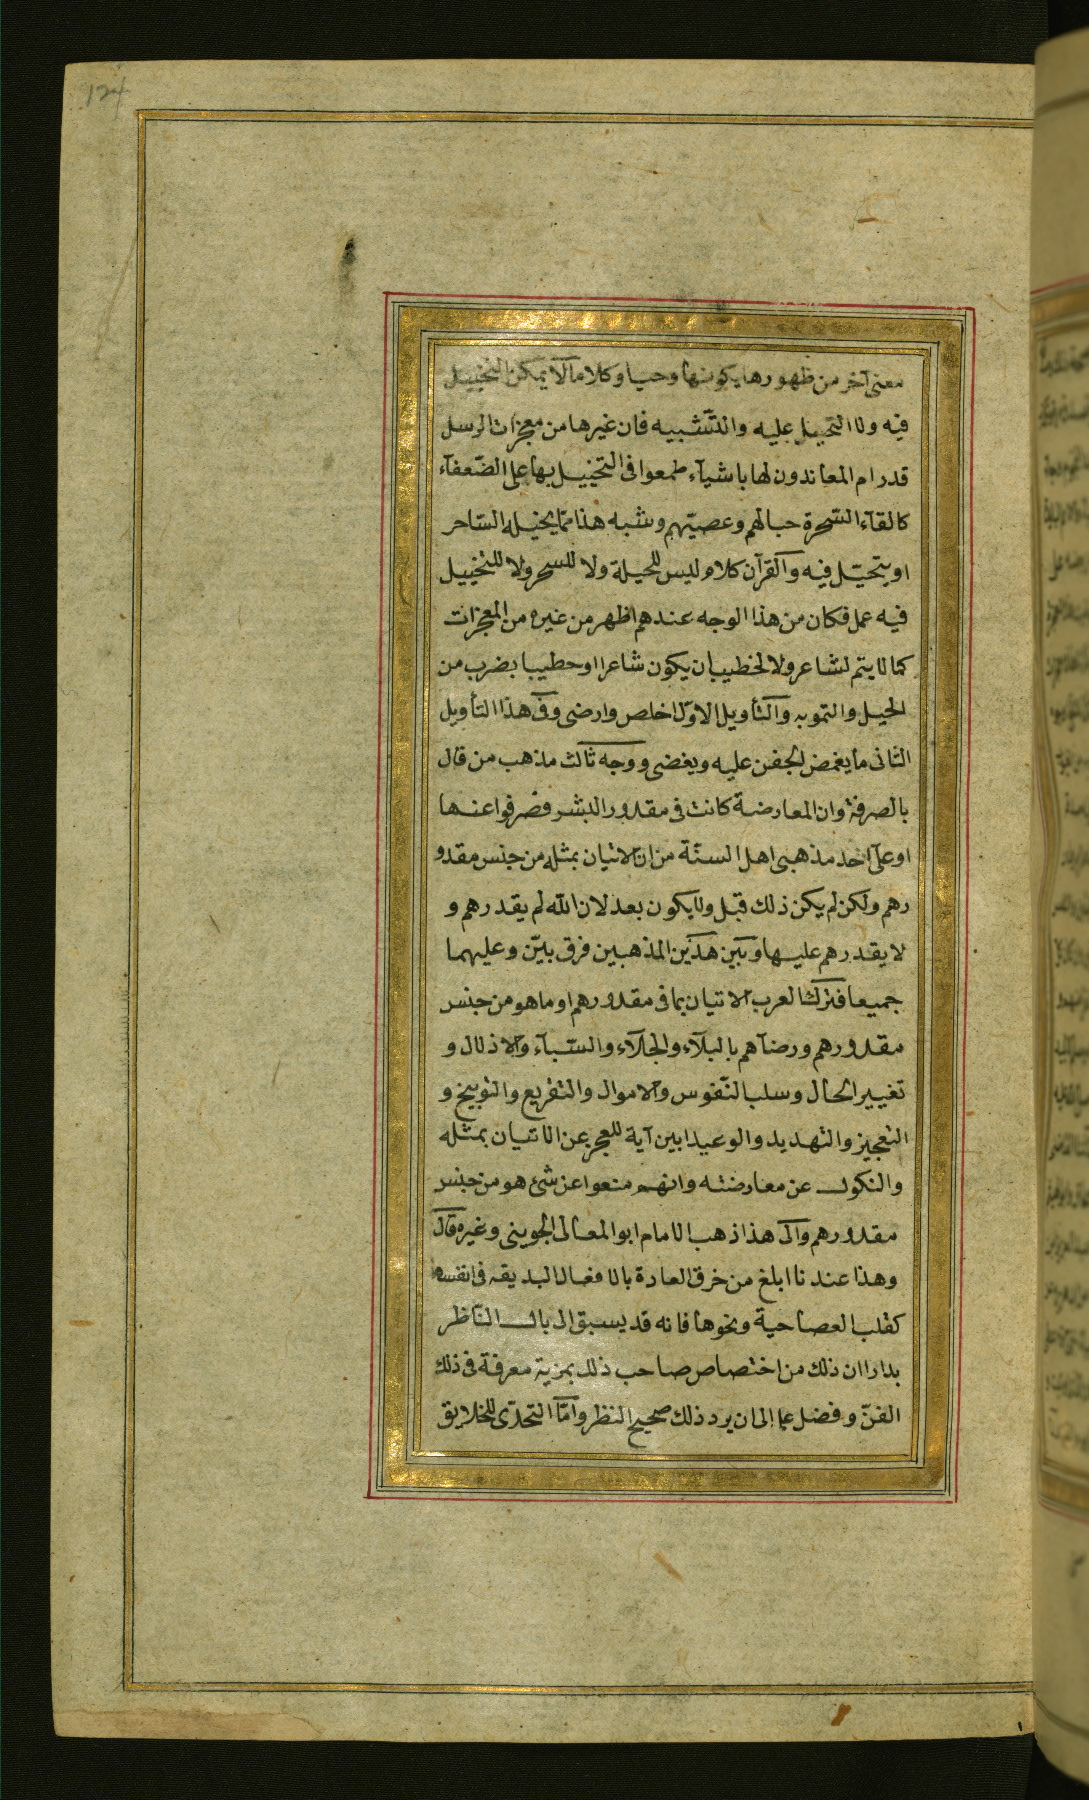 124
معنى آخر من ظهورها بكونها وحيا وكلاما لا يمكن التخييل
فيه ولا التحيل عليه والتّشبيه فان غيرها من معجزات الرسل
قد رام المعاندون لها باشيآء طمعوا فى التخييل بها على الضّعفآء
كالقآء السّحرة حبالهم وعصيّهم وشبه هذا ممّا يخيله السّاحر
او يتحيّل فيه والقرآن كلام ليس للحيلة ولا للسحر ولا للتخييل
فيه عمل فكان من هذا الوجه عندهم اظهر من غيره من المعجزات
كما لا يتم لشاعر ولا لخطيب ان يكون شاعرا او خطيبا بضرب من
الحيل والتمويه والتأويل الاوّل اخلص وارضى وفى هذا التأويل
الثانى ما يغمض الجفن عليه ويغضى ووجه ثالث مذهب من قال
بالصرفة وان المعارضة كانت فى مقدور البشر فصرفوا عنها
او على احد مذهبى اهل السنّة من ان الاتيان بمثله من جنس مقدو
رهم ولكن لم يكن ذلك قبل ولا يكون بعد لان الله لم يقدرهم و
لا يقدرهم عليها وبين هذين المذهبين فرق بيّن وعليهما
جميعا فترك العرب الاتيان بما فى مقدورهم او ما هو من جنس
مقدورهم ورضآهم بالبلآء والجلآء والسّبآء والاذلال و
تغيير الحال وسلب النّفوس والاموال والتقريع والتوبيخ و
التعجيز والتهديد والوعيد ابين آية للعجز عن الاتيان بمثله
والنكول عن معارضته وانهم منعوا عن شئ هو من جنس
مقدورهم والى هذا ذهب الامام ابو المعالى الجوينى وغيره قال
وهذا عندنا ابلغ من خرق العادة بالافعال البديقه فى انفسها
كقلب العصا حية ونحوها فانه قد يسبق الى بال النّاظر
بدارا ان ذلك من اختصاص صاحب ذلك بمزية معرفة فى ذلك
الفنّ وفضل علم الى ان يرد ذلك صحيح النظر وامّا التحدّى للخلايق